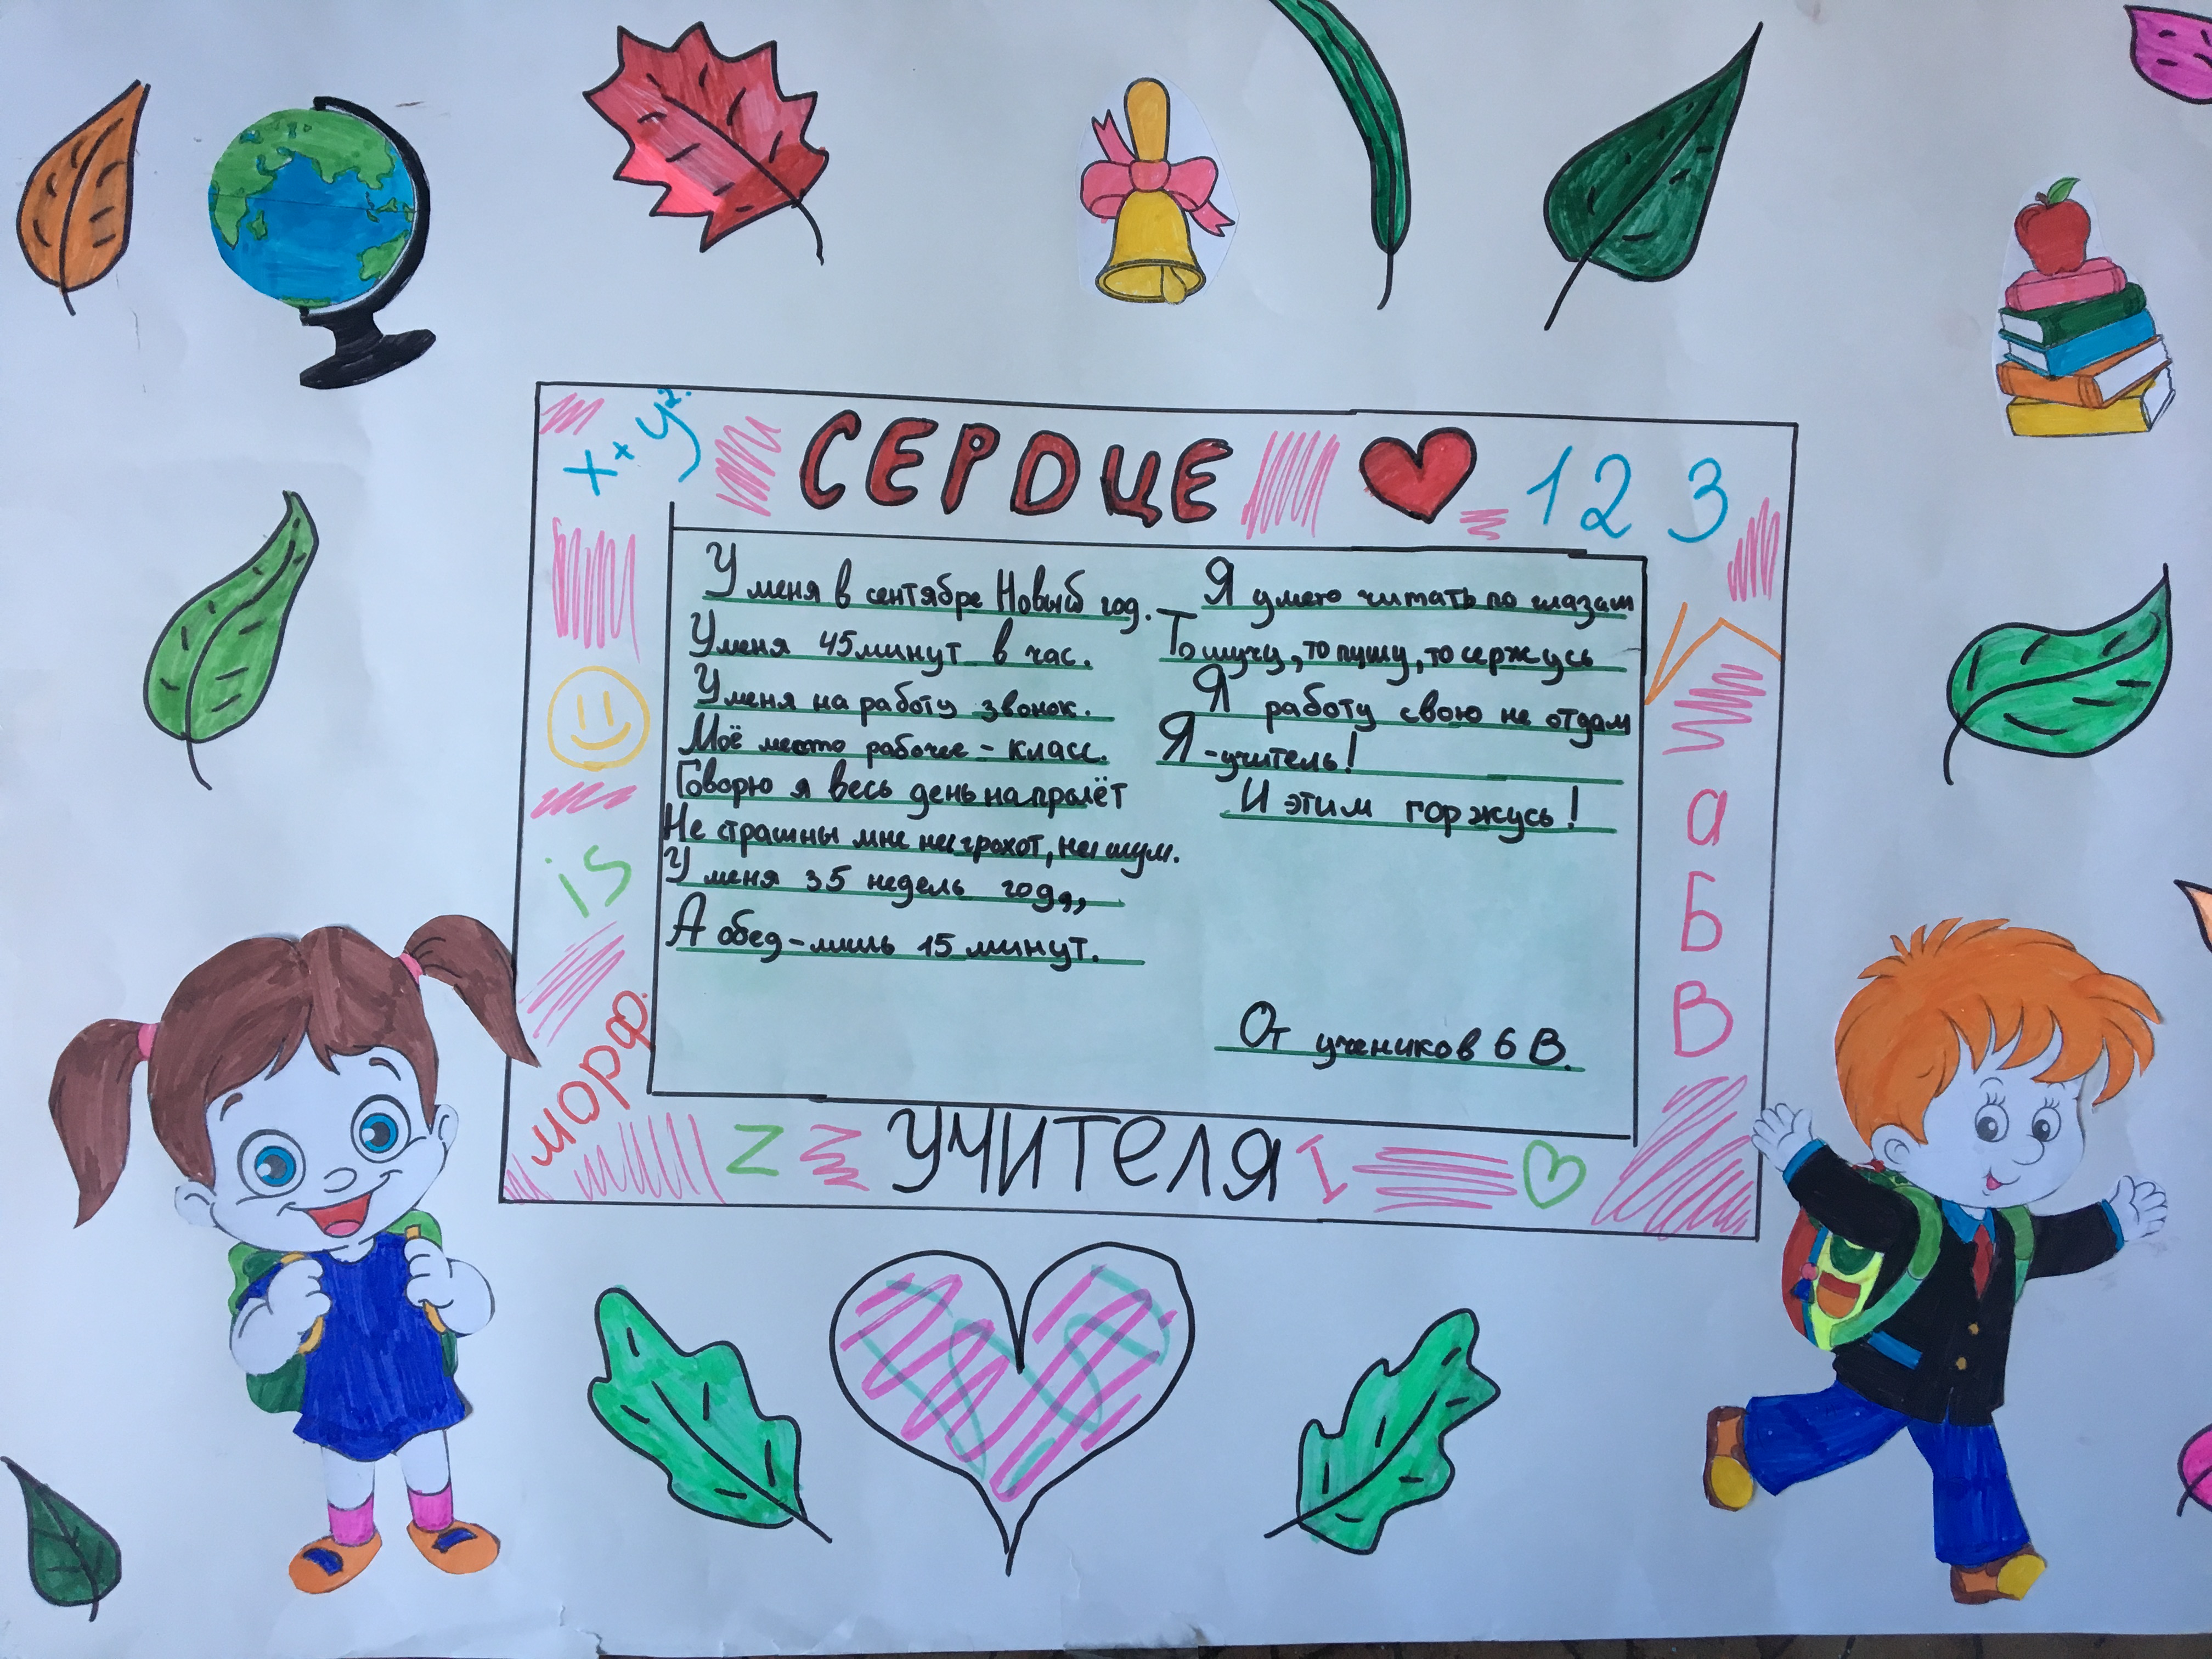 x+y².
СЕРДЦЕ
1 2 3
У меня в сентябре Новый год.
У меня 45 минут в час.
У меня на работу звонок.
Моё место рабочее - класс.
Говорю я весь день напролёт
Не страшны мне ни грохот, ни шум.
У меня 35 недель год,
А обед - лишь 15 минут.
Я умею читать по глазам
То шучу, то пушу, то сержусь
Я работу свою не отдам
Я - учитель!
И этим горжусь!
От учеников 6 В.
is
морф.
а
Б
В
Z
УЧИТЕЛЯ
I